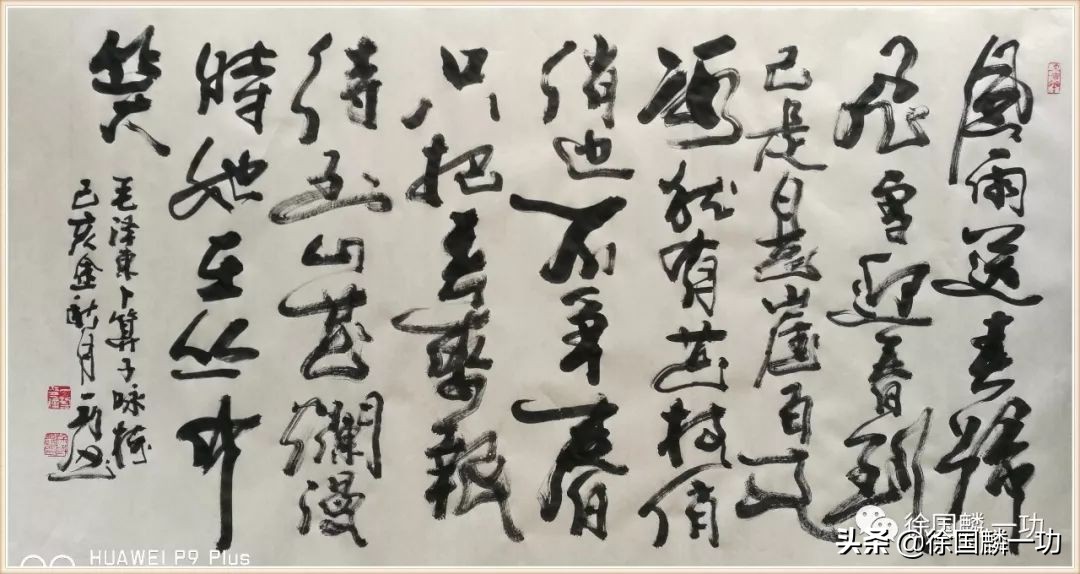 風雨送春歸
飛雪迎春到
已是悬崖百丈
冰犹有花枝俏
俏也不争春
只把春来報
待到山花爛漫
時她在丛中
笑
毛澤東卜算子咏梅
己亥金秋月一功
徐国麟一功
头条@徐国麟一功
HUAWEI P9 Plus